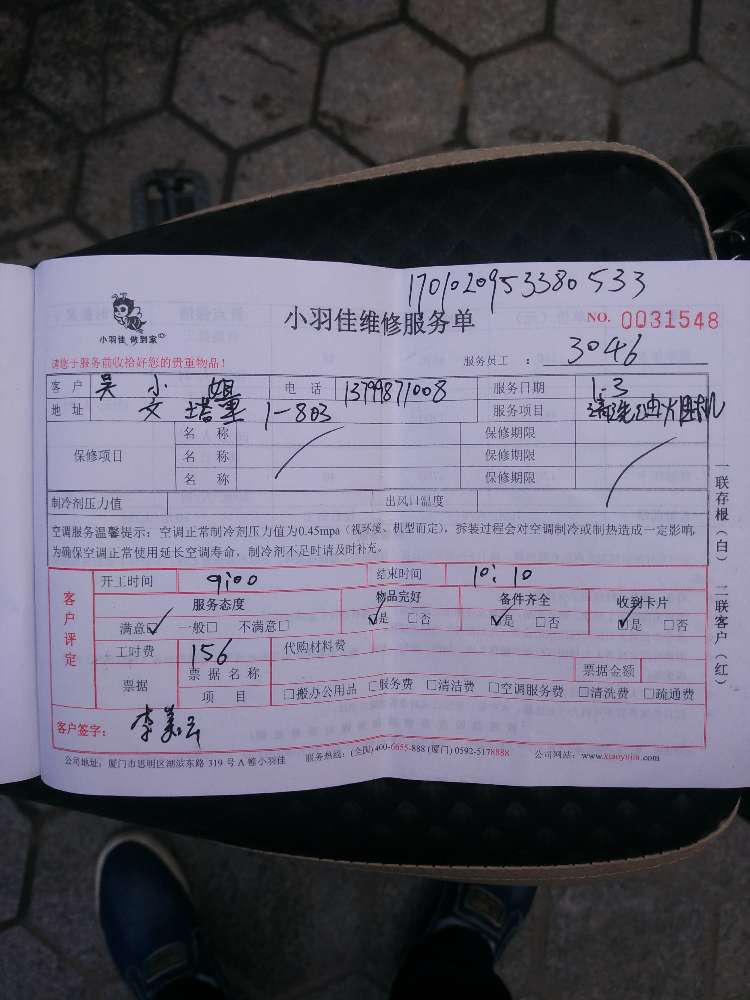 1701020953380533
小羽佳 做到家
小羽佳维修服务单
NO. 0031548
请您于服务前收拾好您的贵重物品!
服务员工 : 3046
客 户 吴小姐 电 话 13799871008 服务日期 1-3
地 址 文塔里 1-803 服务项目 清洗油烟机
保修项目 名 称 保修期限
名 称 保修期限
名 称 保修期限
制冷剂压力值 出风口温度
空调服务温馨提示:空调正常制冷剂压力值为0.45mpa(视环境、机型而定),拆装过程会对空调制冷或制热造成一定影响,
为确保空调正常使用延长空调寿命,制冷剂不足时请及时补充。
客户评定
开工时间 9:00 结束时间 10:10
服务态度 物品完好 备件齐全 收到卡片
满意☑ 一般□ 不满意□ ☑是 □否 ☑是 □否 ☑是 □否
工时费 156 代购材料费
票据 票 据 名 称 票据金额
项 目 □搬办公用品 □服务费 □清洁费 □空调服务费 □清洗费 □疏通费
客户签字: 李美云
公司地址:厦门市思明区湖滨东路 319 号 A 幢小羽佳 服务热线:(全国)400-6655-888 (厦门) 0592-5178888 公司网站:www.xiaoyujia.com
一联存根(白) 二联客户(红)